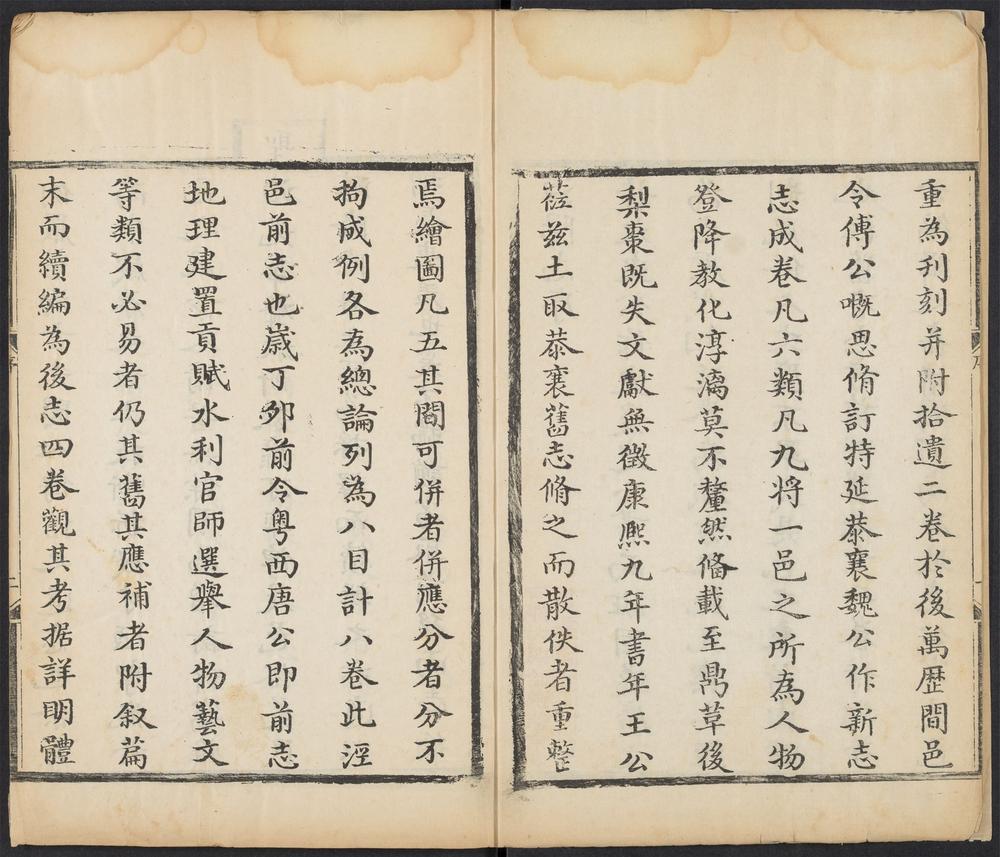 重為刋刻并附拾遺二卷於後萬歷間邑
令傅公嘅思脩訂特延恭襄魏公作新志
志成卷凡六類凡九將一邑之所為人物
登降教化淳漓莫不釐然俻載至鼎草後
梨棗既失文獻無徵康熈九年書年王公
蒞兹土取恭襄舊志脩之而散佚者重整
焉繪圖凡五其間可併者併應分者分不
拘成例各為總論列為八目計八卷此涇
邑前志也歲丁夘前令粤西唐公即前志
地理建置貢賦水利官師選舉人物藝文
等類不必易者仍其舊其應補者附叙篇
末而續編為後志四卷觀其考据詳明體
序
二